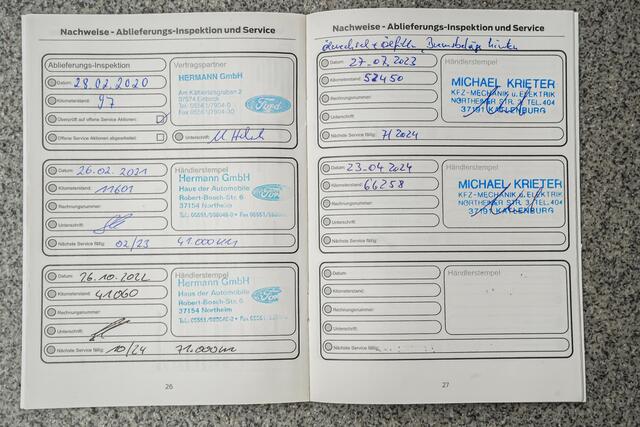 Nachweise - Ablieferungs-Inspektion und Service
Ablieferungs-Inspektion
Datum: 28.02.2020
Kilometerstand: 97
Überprüft auf offene Service Aktionen:
Offene Service Aktionen abgearbeitet:
Vertragspartner
HERMANN GmbH
Am Katherlissgraben 2
37574 Einbeck
Ford
Unterschrift:
Datum: 26.02.2021
Kilometerstand: 11601
Rechnungsnummer:
Unterschrift:
Nächste Service fällig: 02/23 41.000 km
Händlerstempel
Hermann GmbH
Haus der Automobile
Robert-Bosch-Str. 6
37154 Northeim
Ford
Datum: 26.10.2022
Kilometerstand: 41060
Rechnungsnummer:
Unterschrift:
Nächste Service fällig: 10/24 71.000 km
Händlerstempel
Hermann GmbH
Haus der Automobile
Robert-Bosch-Str. 6
37154 Northeim
Ford
26
Nachweise - Ablieferungs-Inspektion und Service
Datum: 27.07.2023
Kilometerstand: 52450
Rechnungsnummer:
Unterschrift:
Nächste Service fällig: 7/2024
Händlerstempel
MICHAEL KRIETER
KFZ-MECHANIK u. ELEKTRIK
NORTHEIMER STR. TEL. 404
37191 KATLENBURG
Datum: 23.04.2024
Kilometerstand: 66258
Rechnungsnummer:
Unterschrift:
Nächste Service fällig:
Händlerstempel
MICHAEL KRIETER
KFZ-MECHANIK u. ELEKTRIK
NORTHEIMER STR. TEL. 404
37191 KATLENBURG
Datum:
Kilometerstand:
Rechnungsnummer:
Unterschrift:
Nächste Service fällig:
Händlerstempel
27